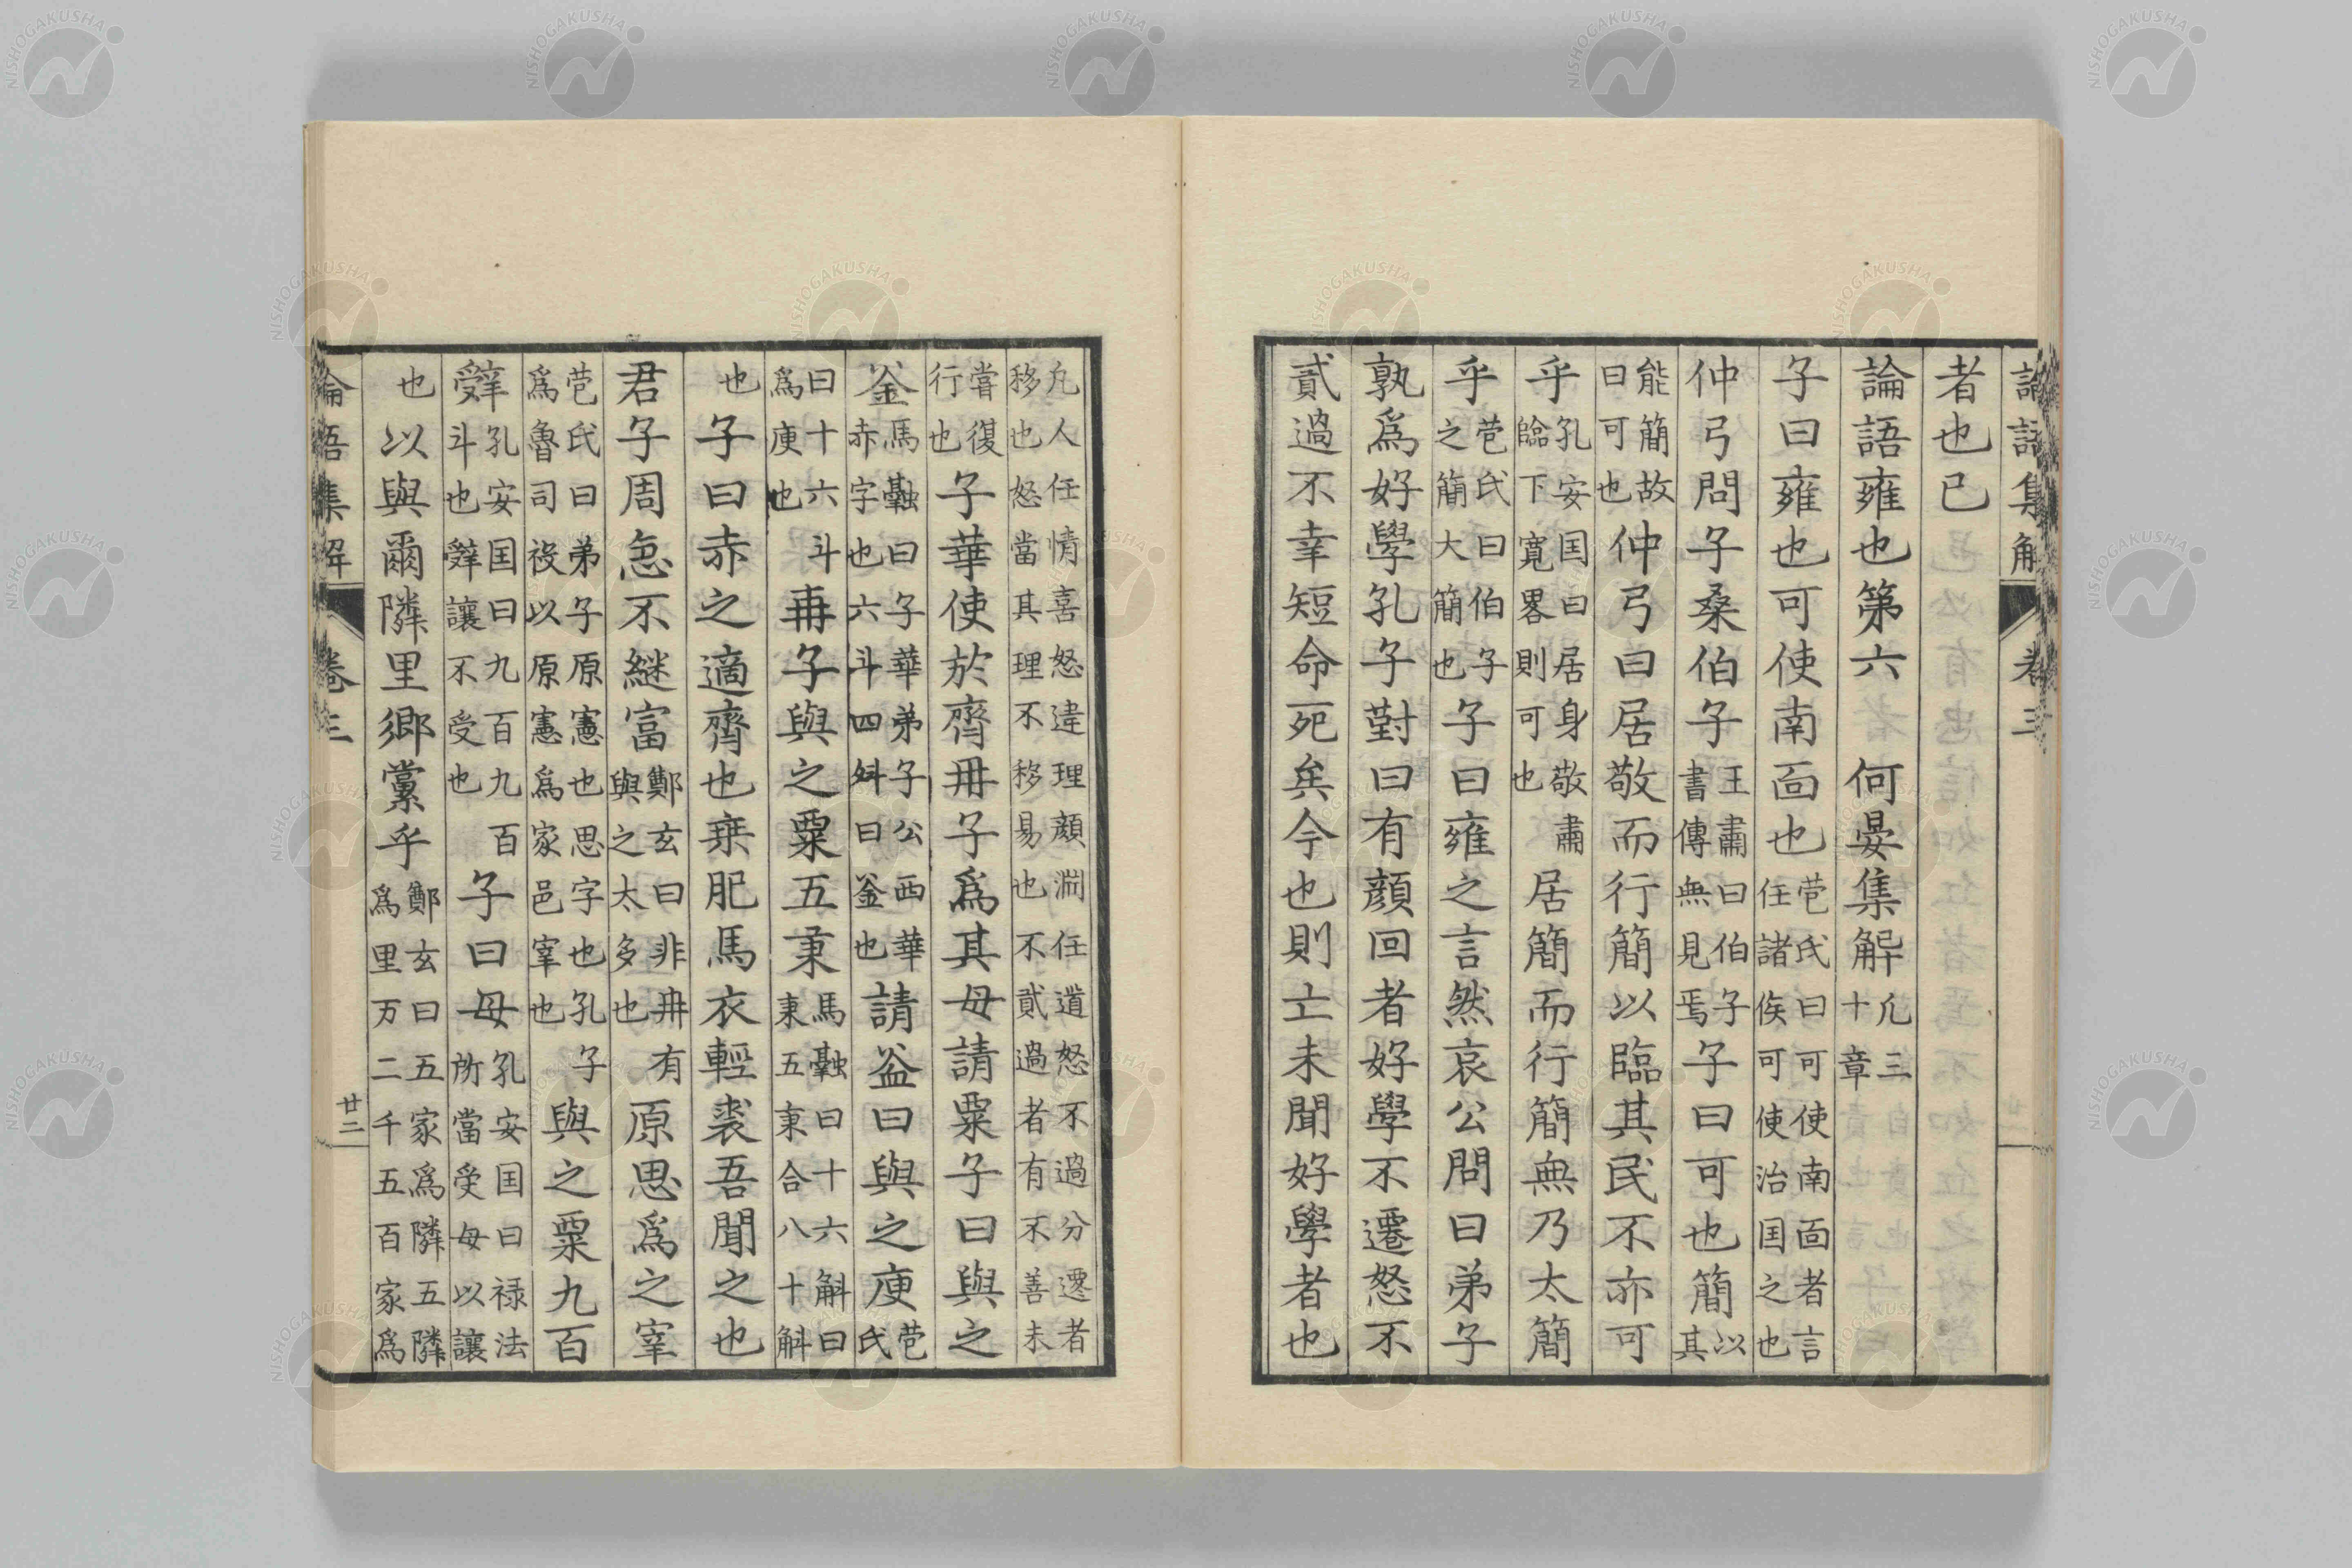 論語集解 卷三
者也已
論語雍也第六 何晏集解凡三十章
子曰雍也可使南面也苞氏曰可使南面者言任諸侯可使治囯之也
仲弓問子桑伯子王肅曰伯子書傳無見焉子曰可也簡以其
能簡故曰可也仲弓曰居敬而行簡以臨其民不亦可
乎孔安囯曰居身敬肅臨下寛畧則可也居簡而行簡無乃太簡
乎苞氏曰伯子之簡大簡也子曰雍之言然哀公問曰弟子
孰爲好學孔子對曰有顔回者好學不遷怒不
貳過不幸短命死矣今也則亡未聞好學者也
凡人任情喜怒違理顔渕任道怒不過分遷者移也怒當其理不移易也不貳過者有不善未
嘗復行也子華使於齊冉子爲其母請粟子曰與之
釜馬融曰子華弟子公西華赤字也六斗四舛曰釜也請益曰與之庾苞氏
曰十六斗爲庾也冉子與之粟五秉馬融曰十六斛曰秉五秉合八十斛
也子曰赤之適齊也乗肥馬衣輕裘吾聞之也
君子周急不継富鄭玄曰非冉有與之太多也原思爲之宰
苞氏曰弟子原憲也思字也孔子爲魯司役以原憲爲家邑宰也與之粟九百
辭孔安囯曰九百九百斗也辭讓不受也子曰毋孔安囯曰禄法所當受毋以讓
也以與爾隣里郷黨乎鄭玄曰五家爲隣五隣爲里万二千五百家爲
論語集解 卷三 廿二
NISHOGAKUSHA